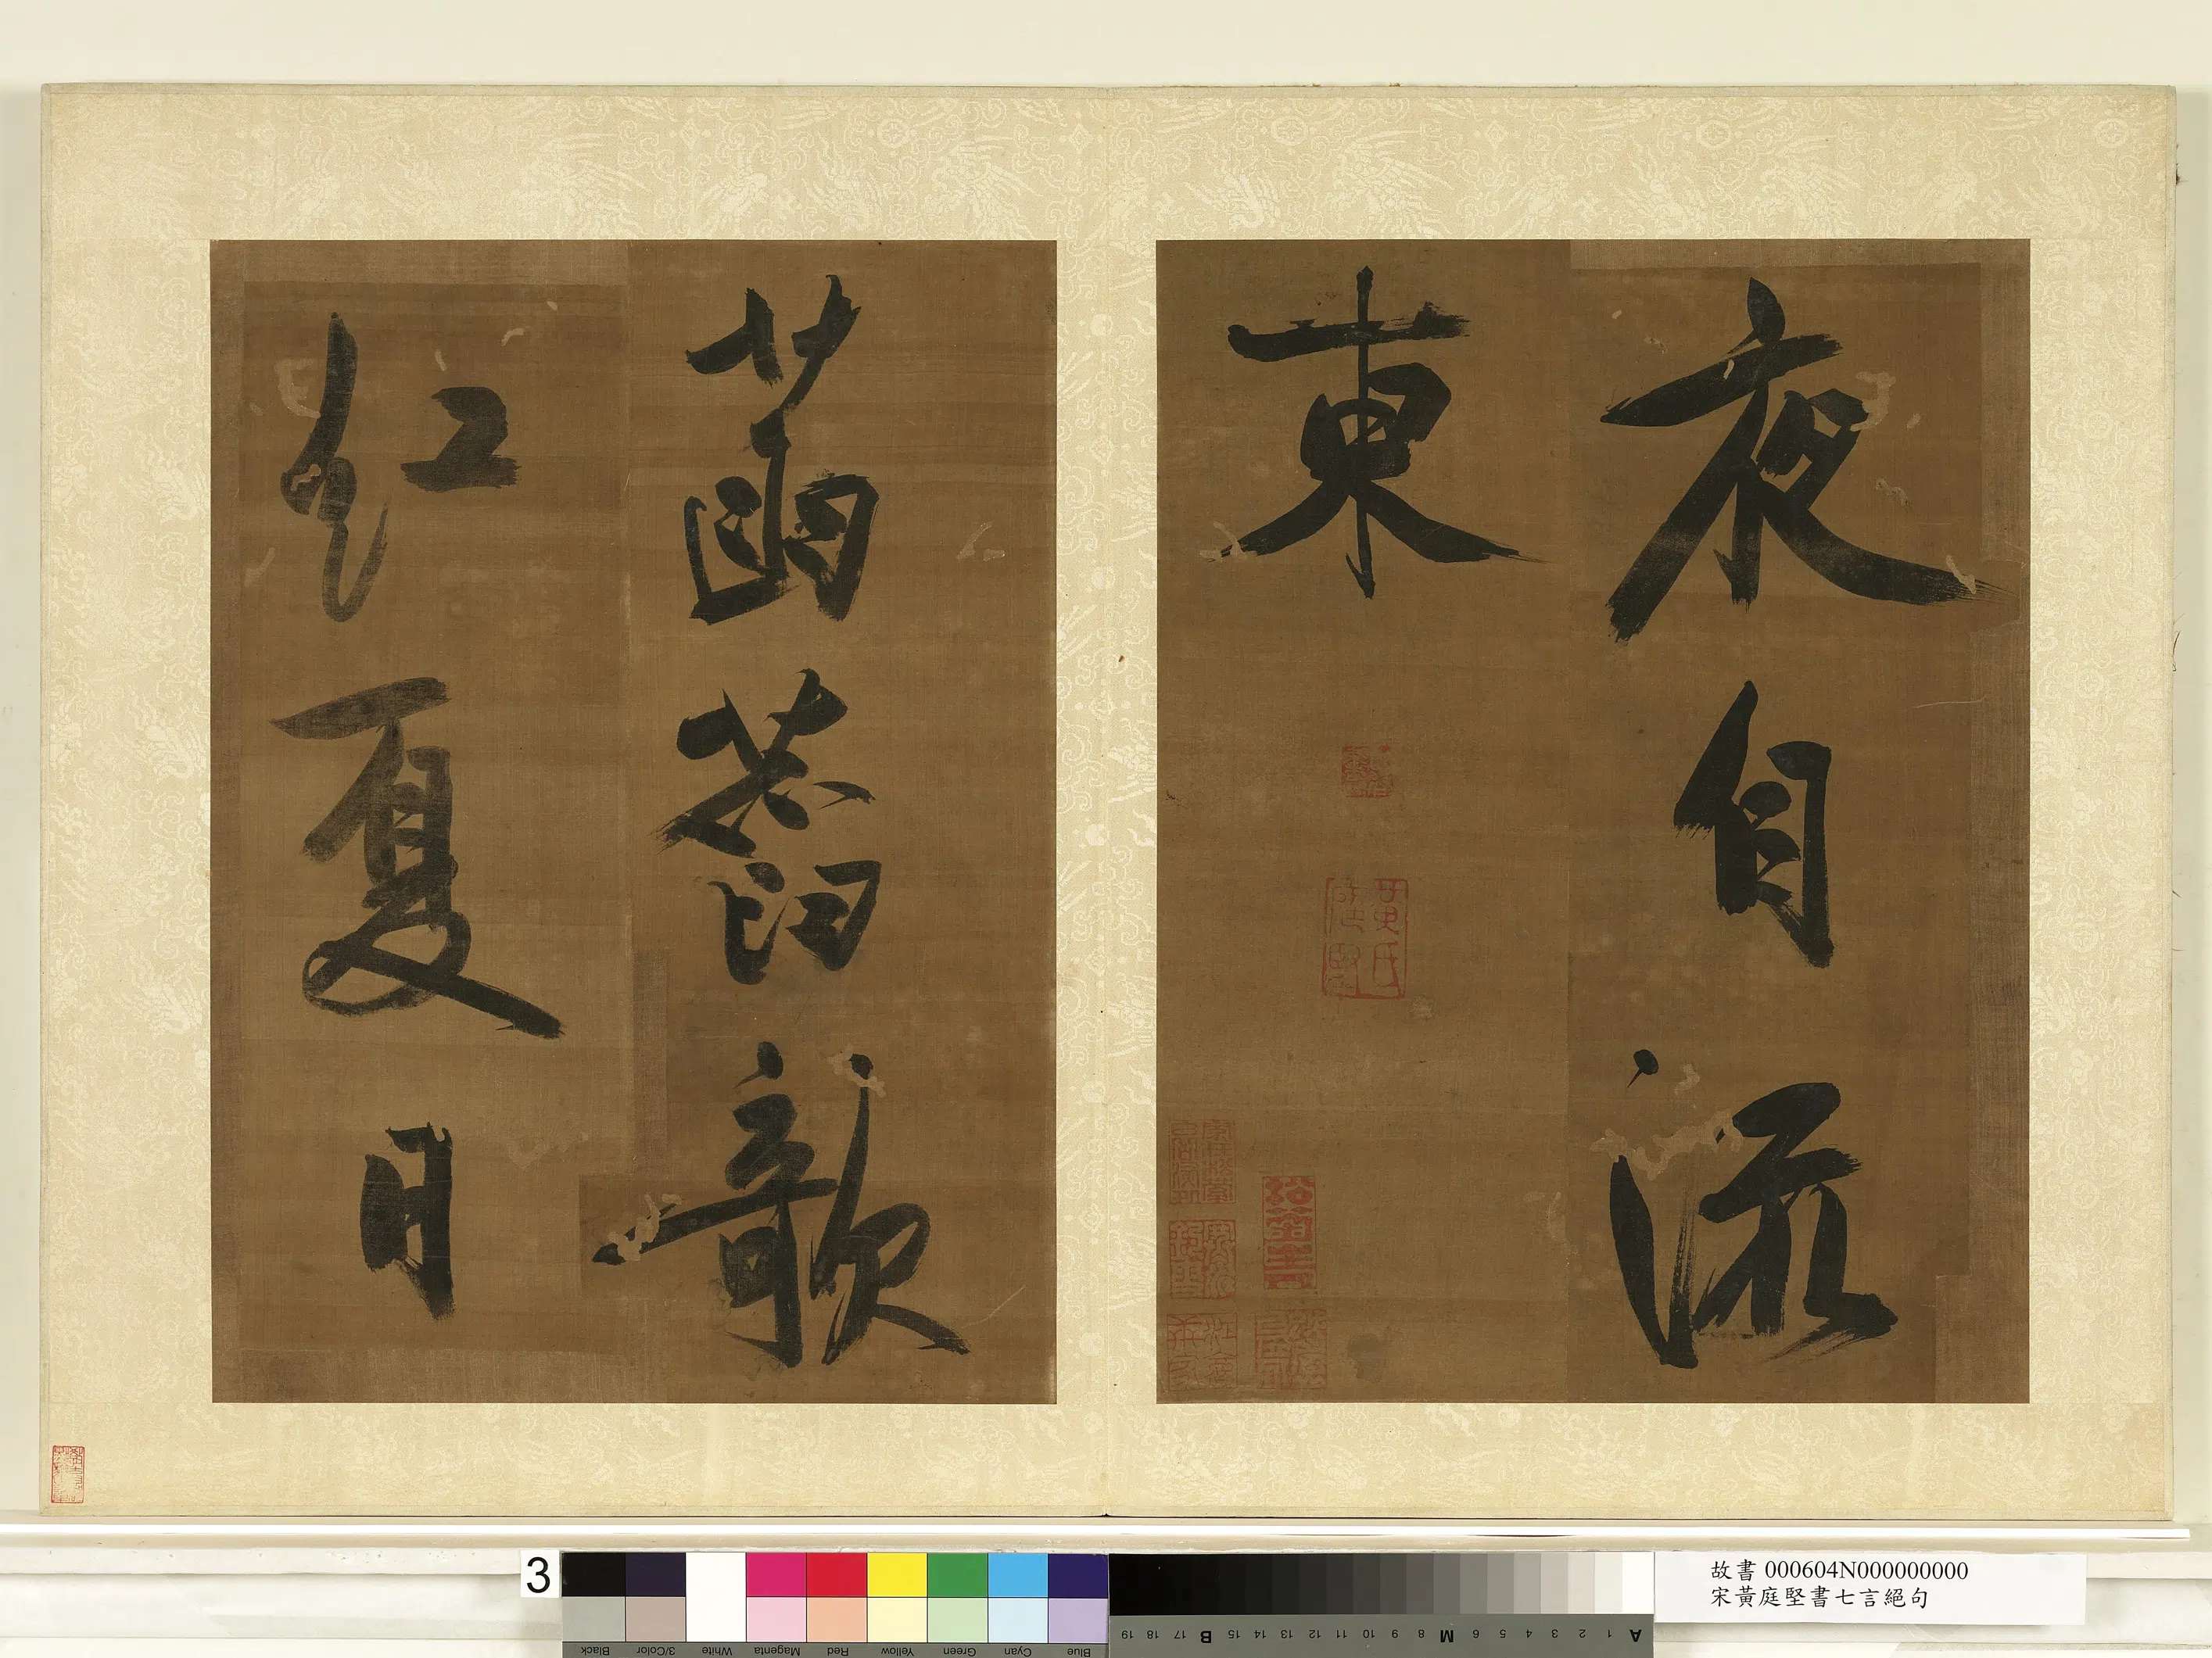 夜自流
東
黃氏庭堅
菡萏欹
紅夏日
3
故書 000604N000000000
宋黃庭堅書七言絕句
Blue Cyan Green Yellow Red Magenta White 3/Color Black
A 1 2 3 4 5 6 M 8 9 10 11 12 13 14 15 B 17 18 19